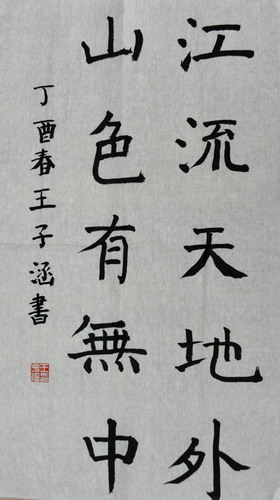 江流天地外
山色有無中
丁酉春王子涵書